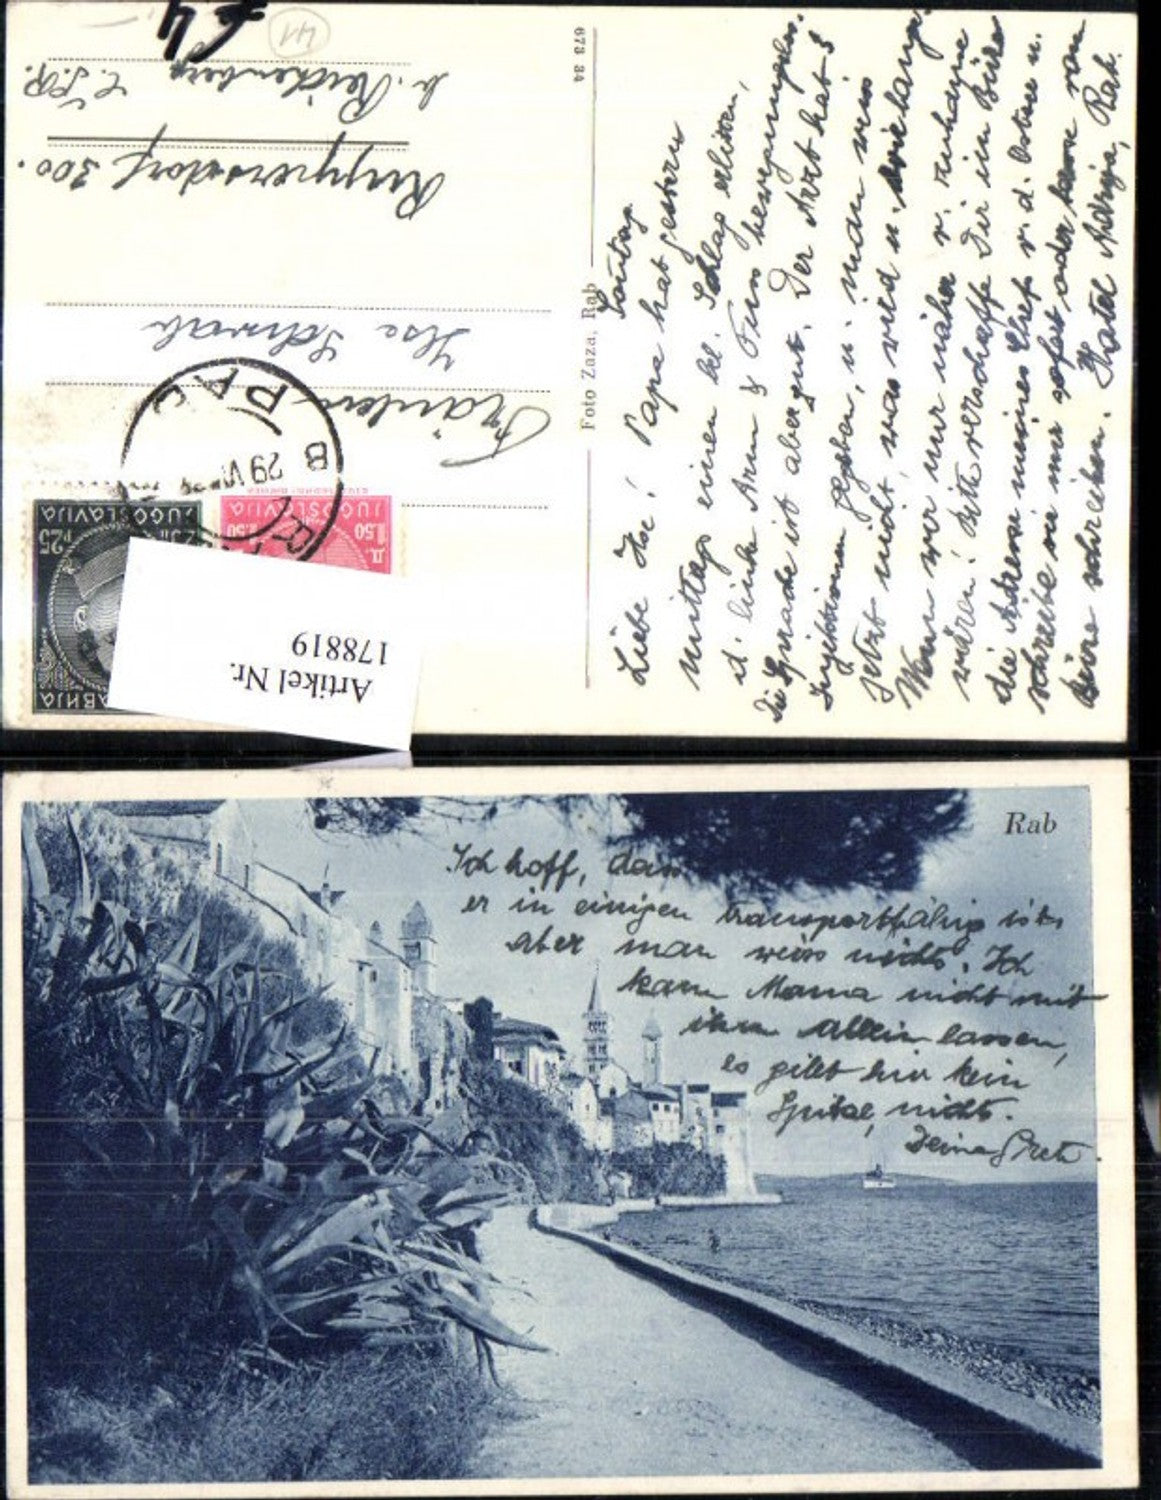 Sonntag
Liebe Ilse! Papa hat gestern
mittag einen bel. Schlag erlitten,
d. linke Arm & Fuss bewegungslos.
Die Sprache ist aber gut. Der Arzt hat 3
Injektionen gegeben, u. man weiss
jetzt nicht, was wird u. wie lange.
Wenn wir nur näher v. zuhause
wären! Bitte verschaffe Dir im Büro
die Adresse meines Chefs v. d. Ostsee u.
schreibe sie mir sofort oder kann von
schreiben. Hotel Adrija, Rab.
Foto Zaza, Rab
673 34
41
Fräulein
Ilse Schwab
Ruppersdorf 300.
b. Reichenberg
Č.S.R.
B PAG
29 VI
ЈУГОСЛАВИЈА
JUGOSLAVIJA
1.50
JUGOSLAVIJA
25
Artikel Nr.
178819
Rab
Ich hoff, dass
er in einigen transportfähig ist,
aber man weiss nichts. Ich
kann Mama nicht mit
ihm allein lassen,
es gibt hier kein
Spital, nichts.
Deine Gret.